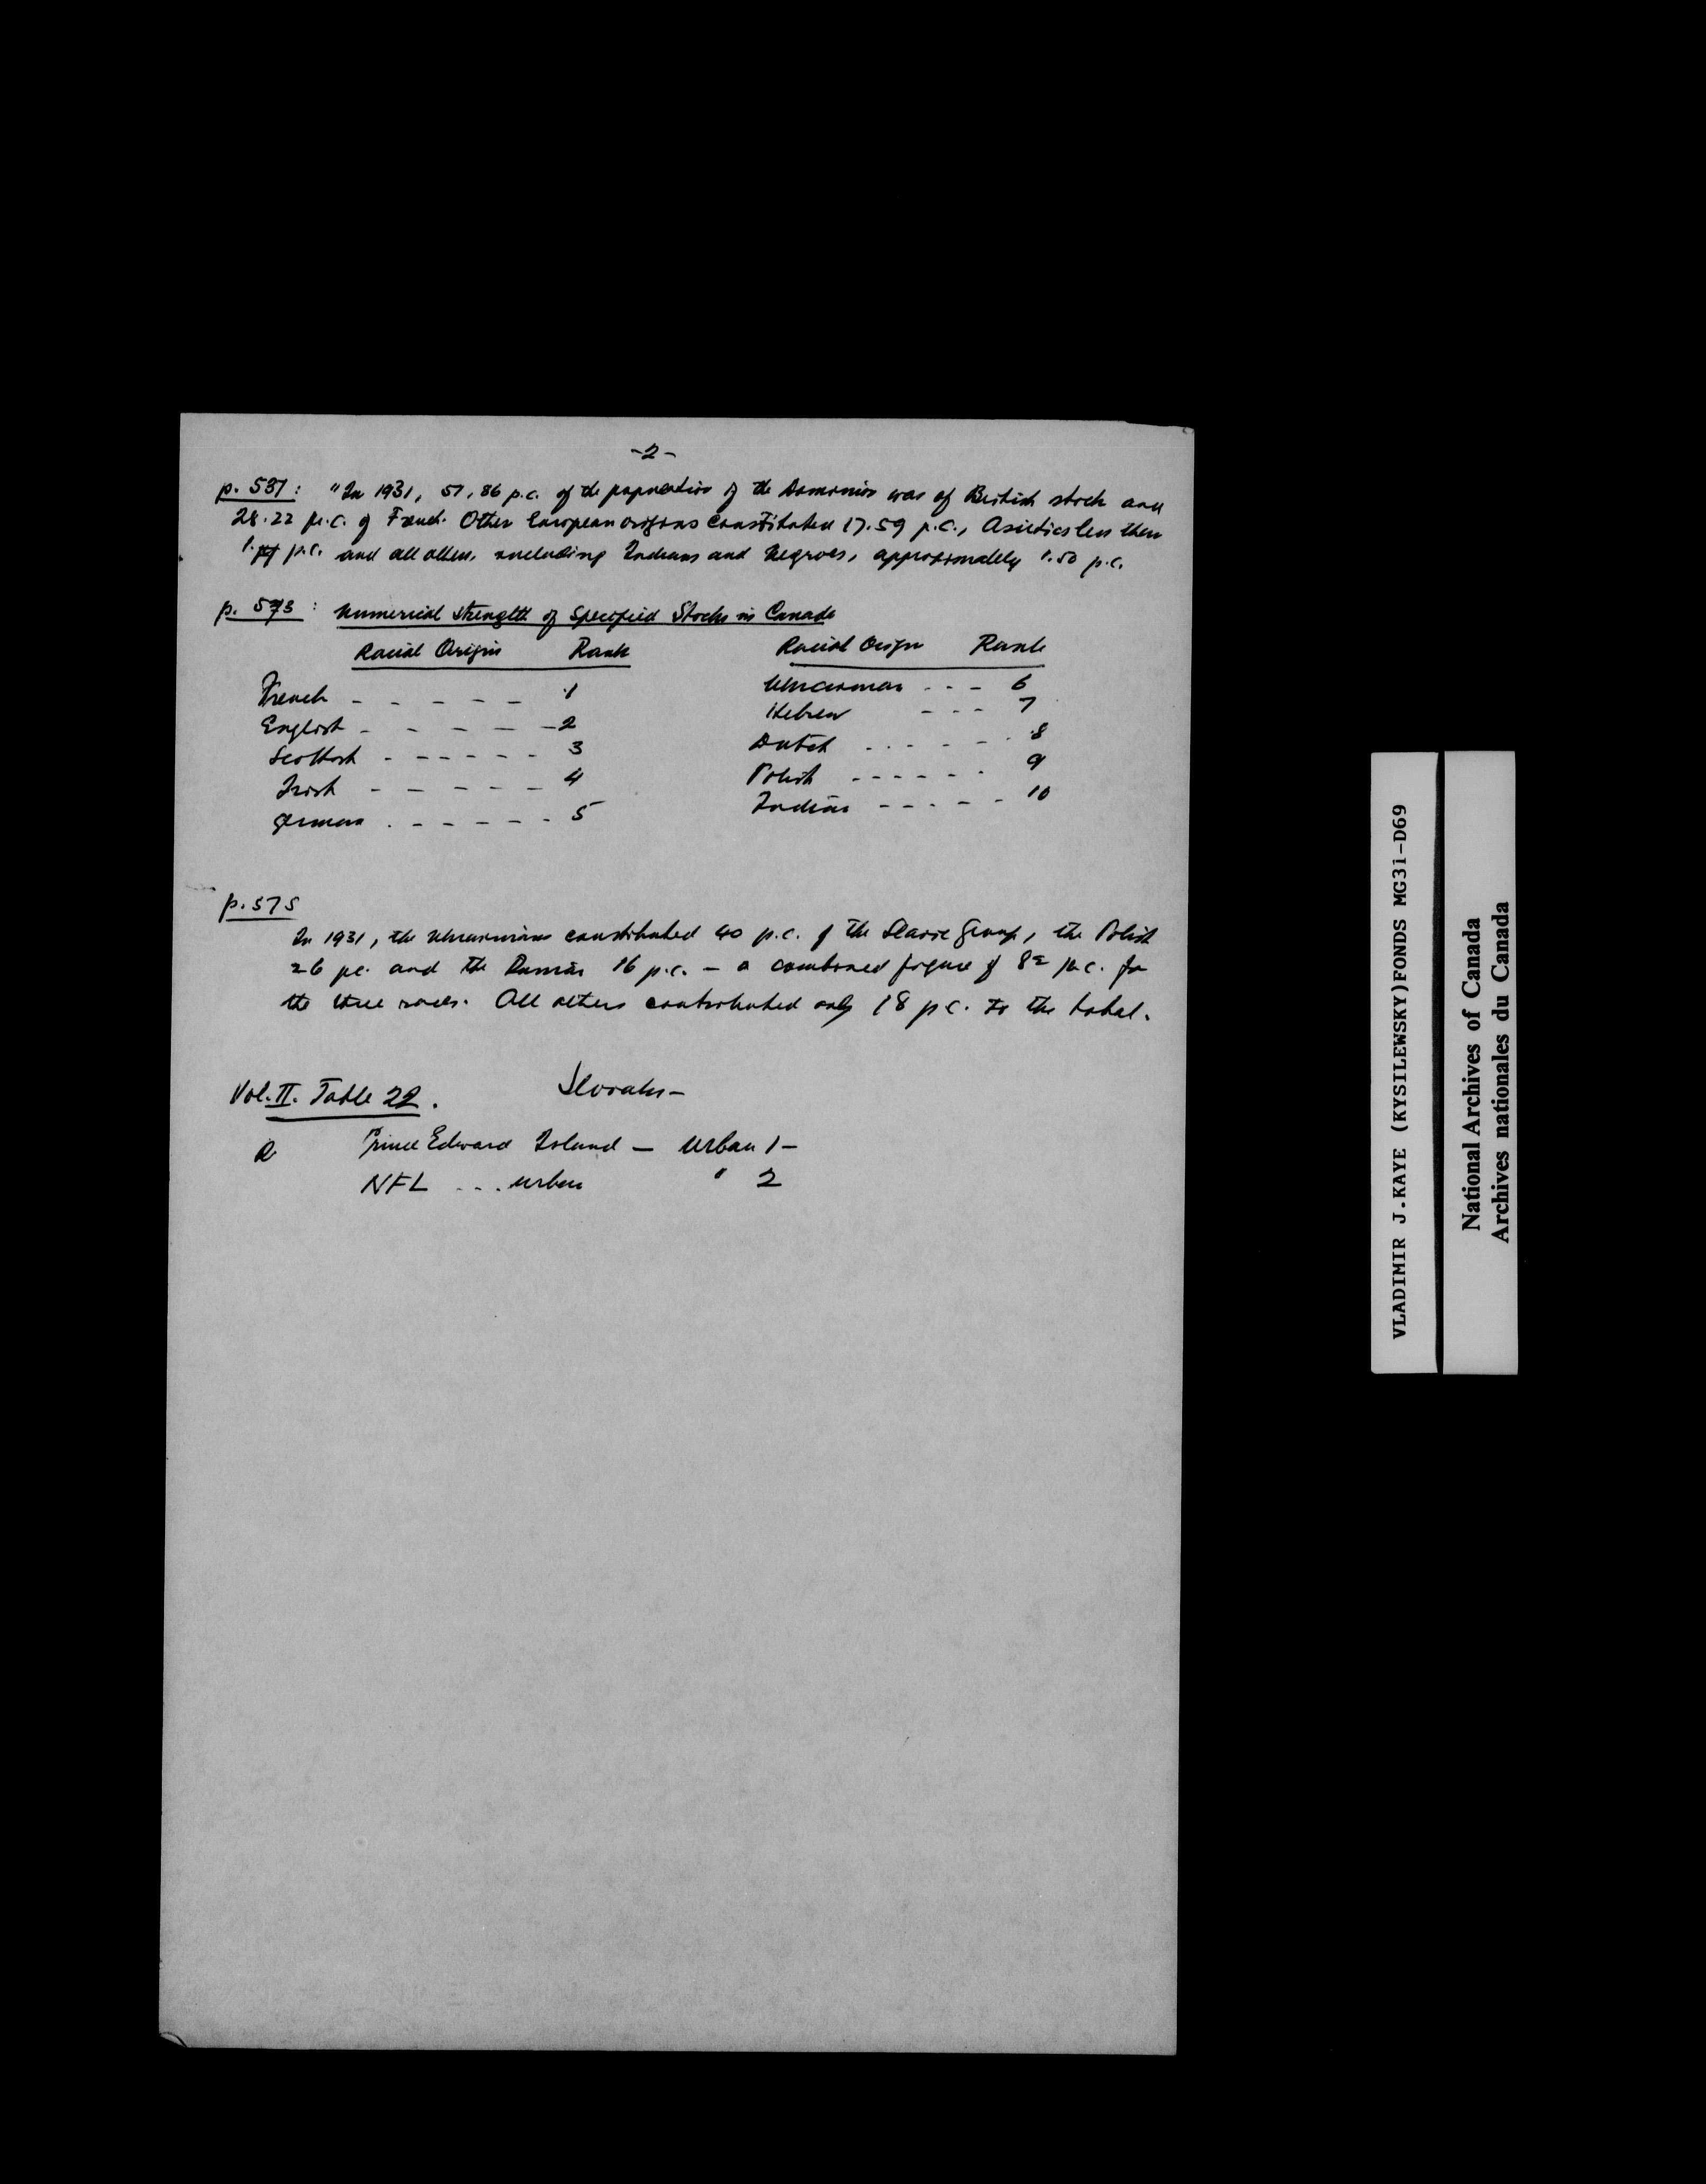 -2-
p. 531: "In 1931, 51.86 p.c. of the population of the Dominion was of British stock and
28.22 p.c. of French. Other European origins constituted 17.59 p.c., Asiatics less than
1. p.c. and all others, including Indians and Negroes, approximately 1.50 p.c.
p. 573: Numerical Strength of Specified Stocks in Canada
Racial Origin Rank Racial Origin Rank
French - - - - - 1 Ukrainian - - - 6
English - - - - - 2 Hebrew - - - 7
Scottish - - - - - - 3 Dutch - - - - - - 8
Irish - - - - - 4 Polish - - - - - - 9
German - - - - - - 5 Indian - - - - - 10
p. 575
In 1931, the Ukrainians constituted 40 p.c. of the Slavic Group, the Polish
26 p.c. and the Russian 16 p.c. - a combined figure of 82 p.c. for
the three races. All others contributed only 18 p.c. to the total.
Vol. II. Table 22. Slovaks -
Prince Edward Island - Urban 1 -
NFL ... urban " 2
VLADIMIR J.KAYE (KYSILEWSKY)FONDS MG31-D69
National Archives of Canada
Archives nationales du Canada